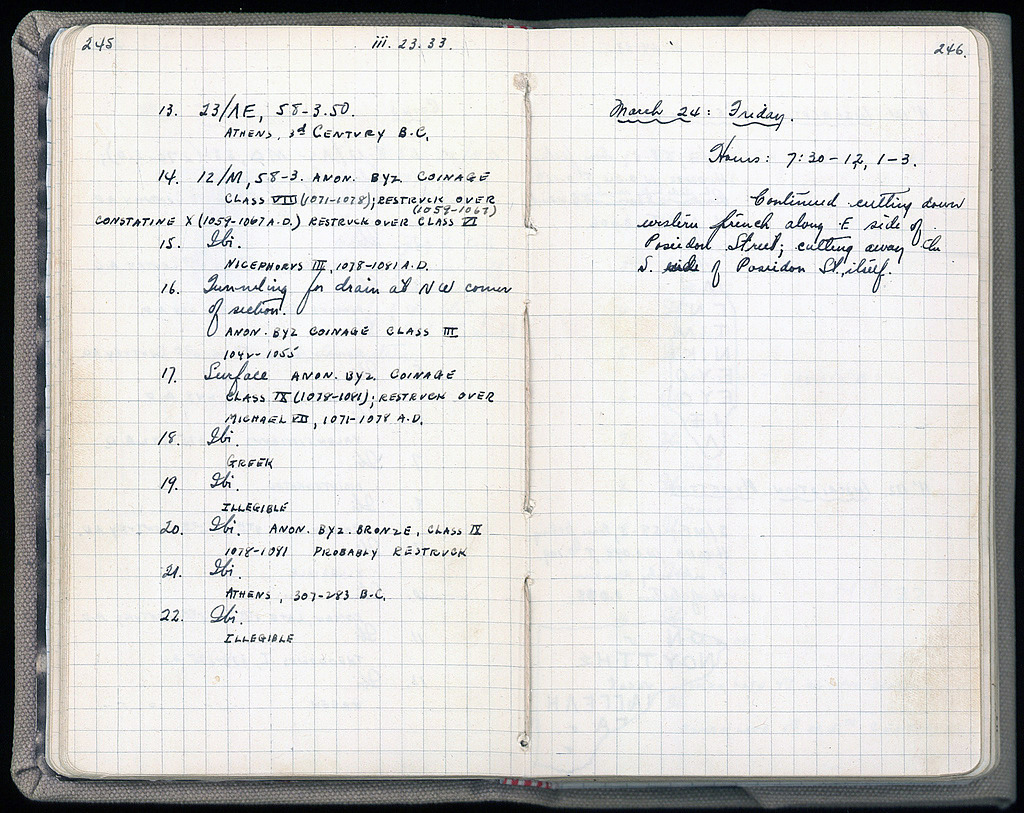 245
iii. 23. 33.
13. 23/ΛE, 58-3.50.
ATHENS, 3d CENTURY B.C.
14. 12/M, 58-3. ANON. BYZ COINAGE
CLASS VIII (1071-1078); RESTRUCK OVER
(1059-1067)
CONSTATINE X (1059-1067 A.D.) RESTRUCK OVER CLASS VI
15. Ibi.
NICEPHORUS III, 1078-1081 A.D.
16. Tunneling for drain at NW corner
of section.
ANON. BYZ COINAGE CLASS III
1042-1055
17. Surface ANON. BYZ. COINAGE
CLASS IX (1078-1081); RESTRUCK OVER
MICHAEL VII, 1071-1078 A.D.
18. Ibi.
GREEK
19. Ibi.
ILLEGIBLE
20. Ibi. ANON. BYZ. BRONZE, CLASS IX
1078-1081 PROBABLY RESTRUCK
21. Ibi.
ATHENS, 307-283 B.C.
22. Ibi.
ILLEGIBLE
246.
March 24: Friday.
Hours: 7:30-12, 1-3.
Continued cutting down
western trench along E side of
Poseidon Street; cutting away the
S. side of Poseidon St. itself.